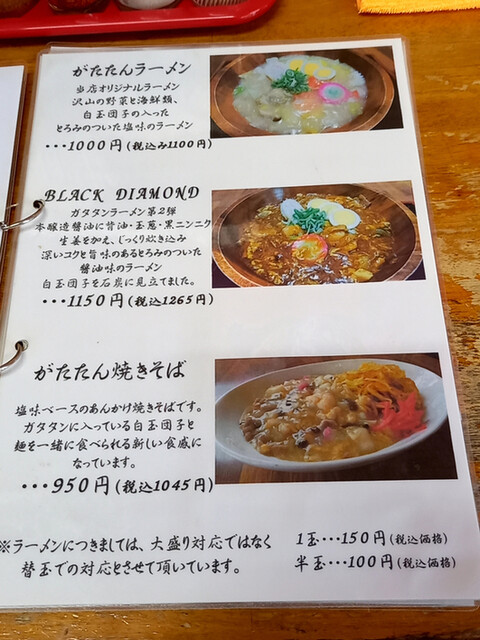 がたたんラーメン
当店オリジナルラーメン
沢山の野菜と海鮮類、
白玉団子の入った
とろみのついた塩味のラーメン
・・・1000円(税込み1100円)
BLACK DIAMOND
ガタタンラーメン第2弾
本醸造醤油に背油・玉葱・黒ニンニク
生姜を加え、じっくり炊き込み
深いコクと旨味のあるとろみのついた
醤油味のラーメン
白玉団子を石炭に見立てました。
・・・1150円(税込1265円)
がたたん焼きそば
塩味ベースのあんかけ焼きそばです。
ガタタンに入っている白玉団子と
麺を一緒に食べられる新しい食感に
なっています。
・・・950円(税込1045円)
※ラーメンにつきましては、大盛り対応ではなく
替玉での対応とさせて頂いています。
1玉・・・150円(税込価格)
半玉・・・100円(税込価格)